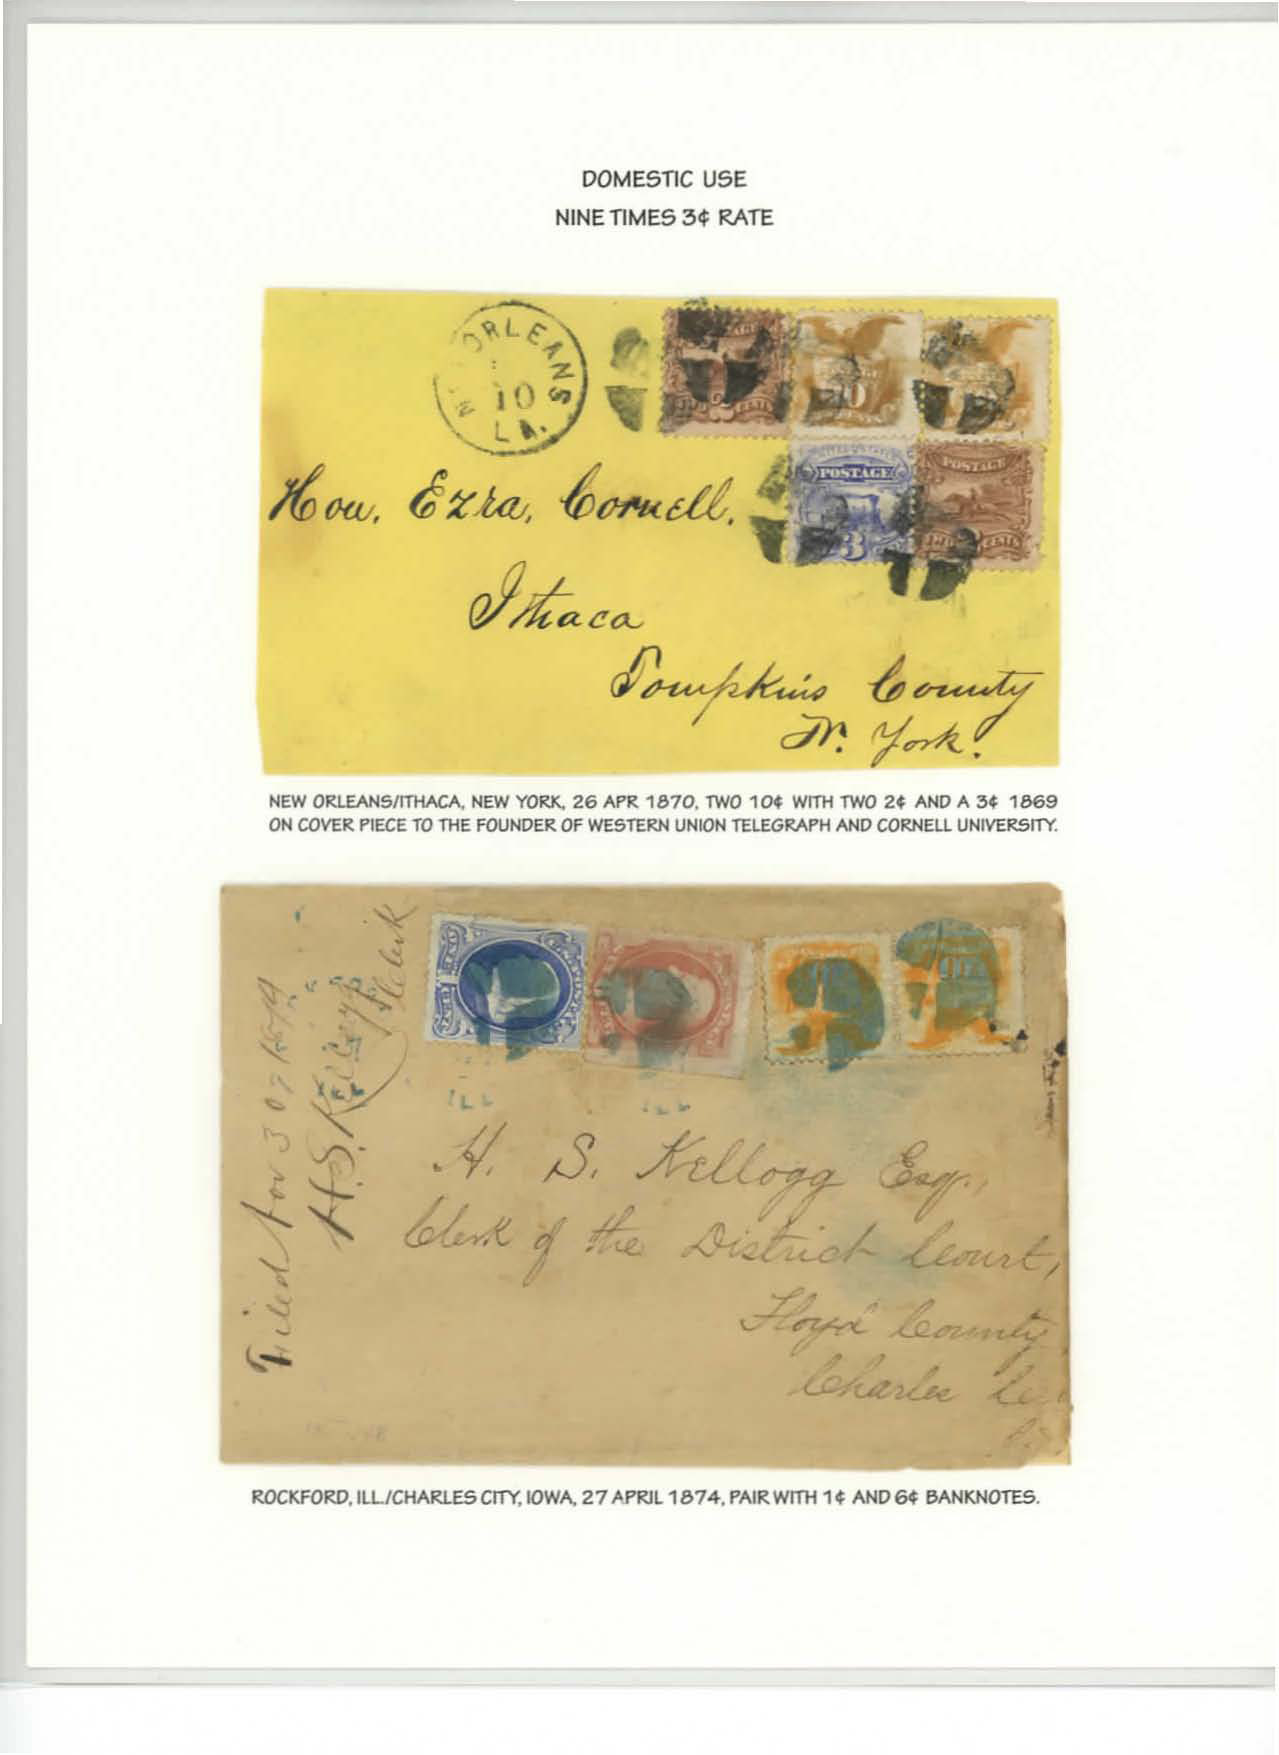 DOMESTIC USE
NINE TIMES 3¢ RATE
ORLEANS
10
LA.
POSTAGE
3
POSTAGE
TWO CENTS
Hon. Ezra Cornell.
Ithaca
Tompkins County
N. York.
NEW ORLEANS/ITHACA, NEW YORK, 26 APR 1870, TWO 10¢ WITH TWO 2¢ AND A 3¢ 1869
ON COVER PIECE TO THE FOUNDER OF WESTERN UNION TELEGRAPH AND CORNELL UNIVERSITY.
Filed Nov 30
H.S. Kellogg
Clerk
ILL
ILL
H. S. Kellogg Esq.,
Clerk of the District Court,
Floyd County
Charles
ROCKFORD, ILL./CHARLES CITY, IOWA, 27 APRIL 1874, PAIR WITH 1¢ AND 6¢ BANKNOTES.